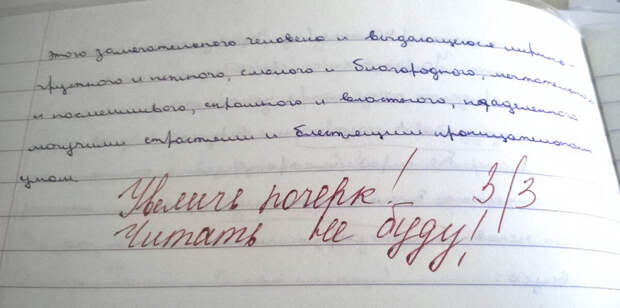 этого замечательного человека и выдающегося лирика -
грустного и нежного, смелого и благородного, мечтательного
и насмешливого, скромного и властного, наделенного
могучими страстями и блестящим проницательным
умом.
Увеличь почерк! 3/3
Читать не буду!